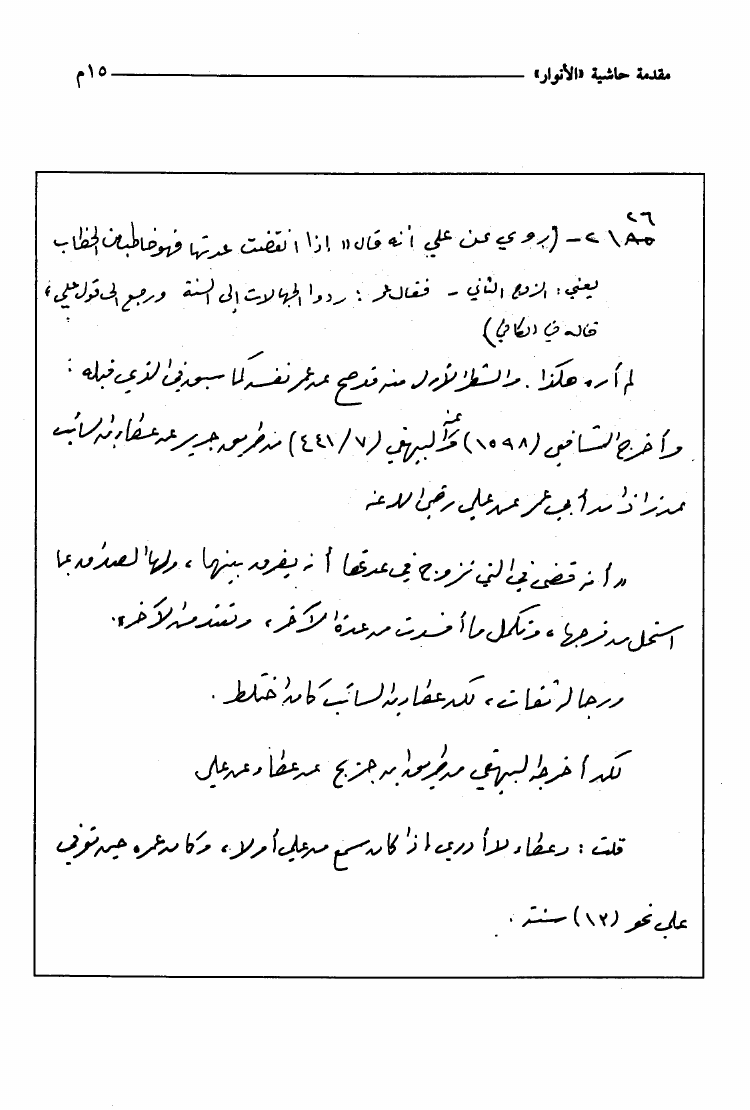 مقدمة حاشية «الأنوار» ١٥م
٢٦
٢١٨٥ – (روي عن علي أنه قال « إذا انقضت عدتها فهو خاطب من الخطاب
يعني : الزوج الثاني – فقال عمر : ردوا الجهالات إلى السنة ورجع إلى قول علي ،
قاله في الكافي)
لم أره هكذا . والشطر الأول منه قد صح عن عمر نفسه كما سبق في الذي قبله :
وأخرج الشافعي (١٥٩٨) وعنه البيهقي (٤٤١/٧) من طريق جرير عن عطاء بن السائب
عن زاذان أبي عمر عن علي رضي الله عنه
« أنه قضى في التي تزوج في عدتها أنه يفرق بينهما ، ولها الصداق بما
استحل من فرجها ، وتكمل ما أفسدت من عدة الآخر ، وتعتد من الآخر».
ورجاله ثقات ، لكن عطاء بن السائب كان اختلط .
لكن أخرجه البيهقي من طريق ابن جريج عن عطاء عن علي
قلت : وعطاء لا أدري إذا كان سمع من علي أو لا ، وكان عمره حين توفي
علي نحو (١٣) سنة .